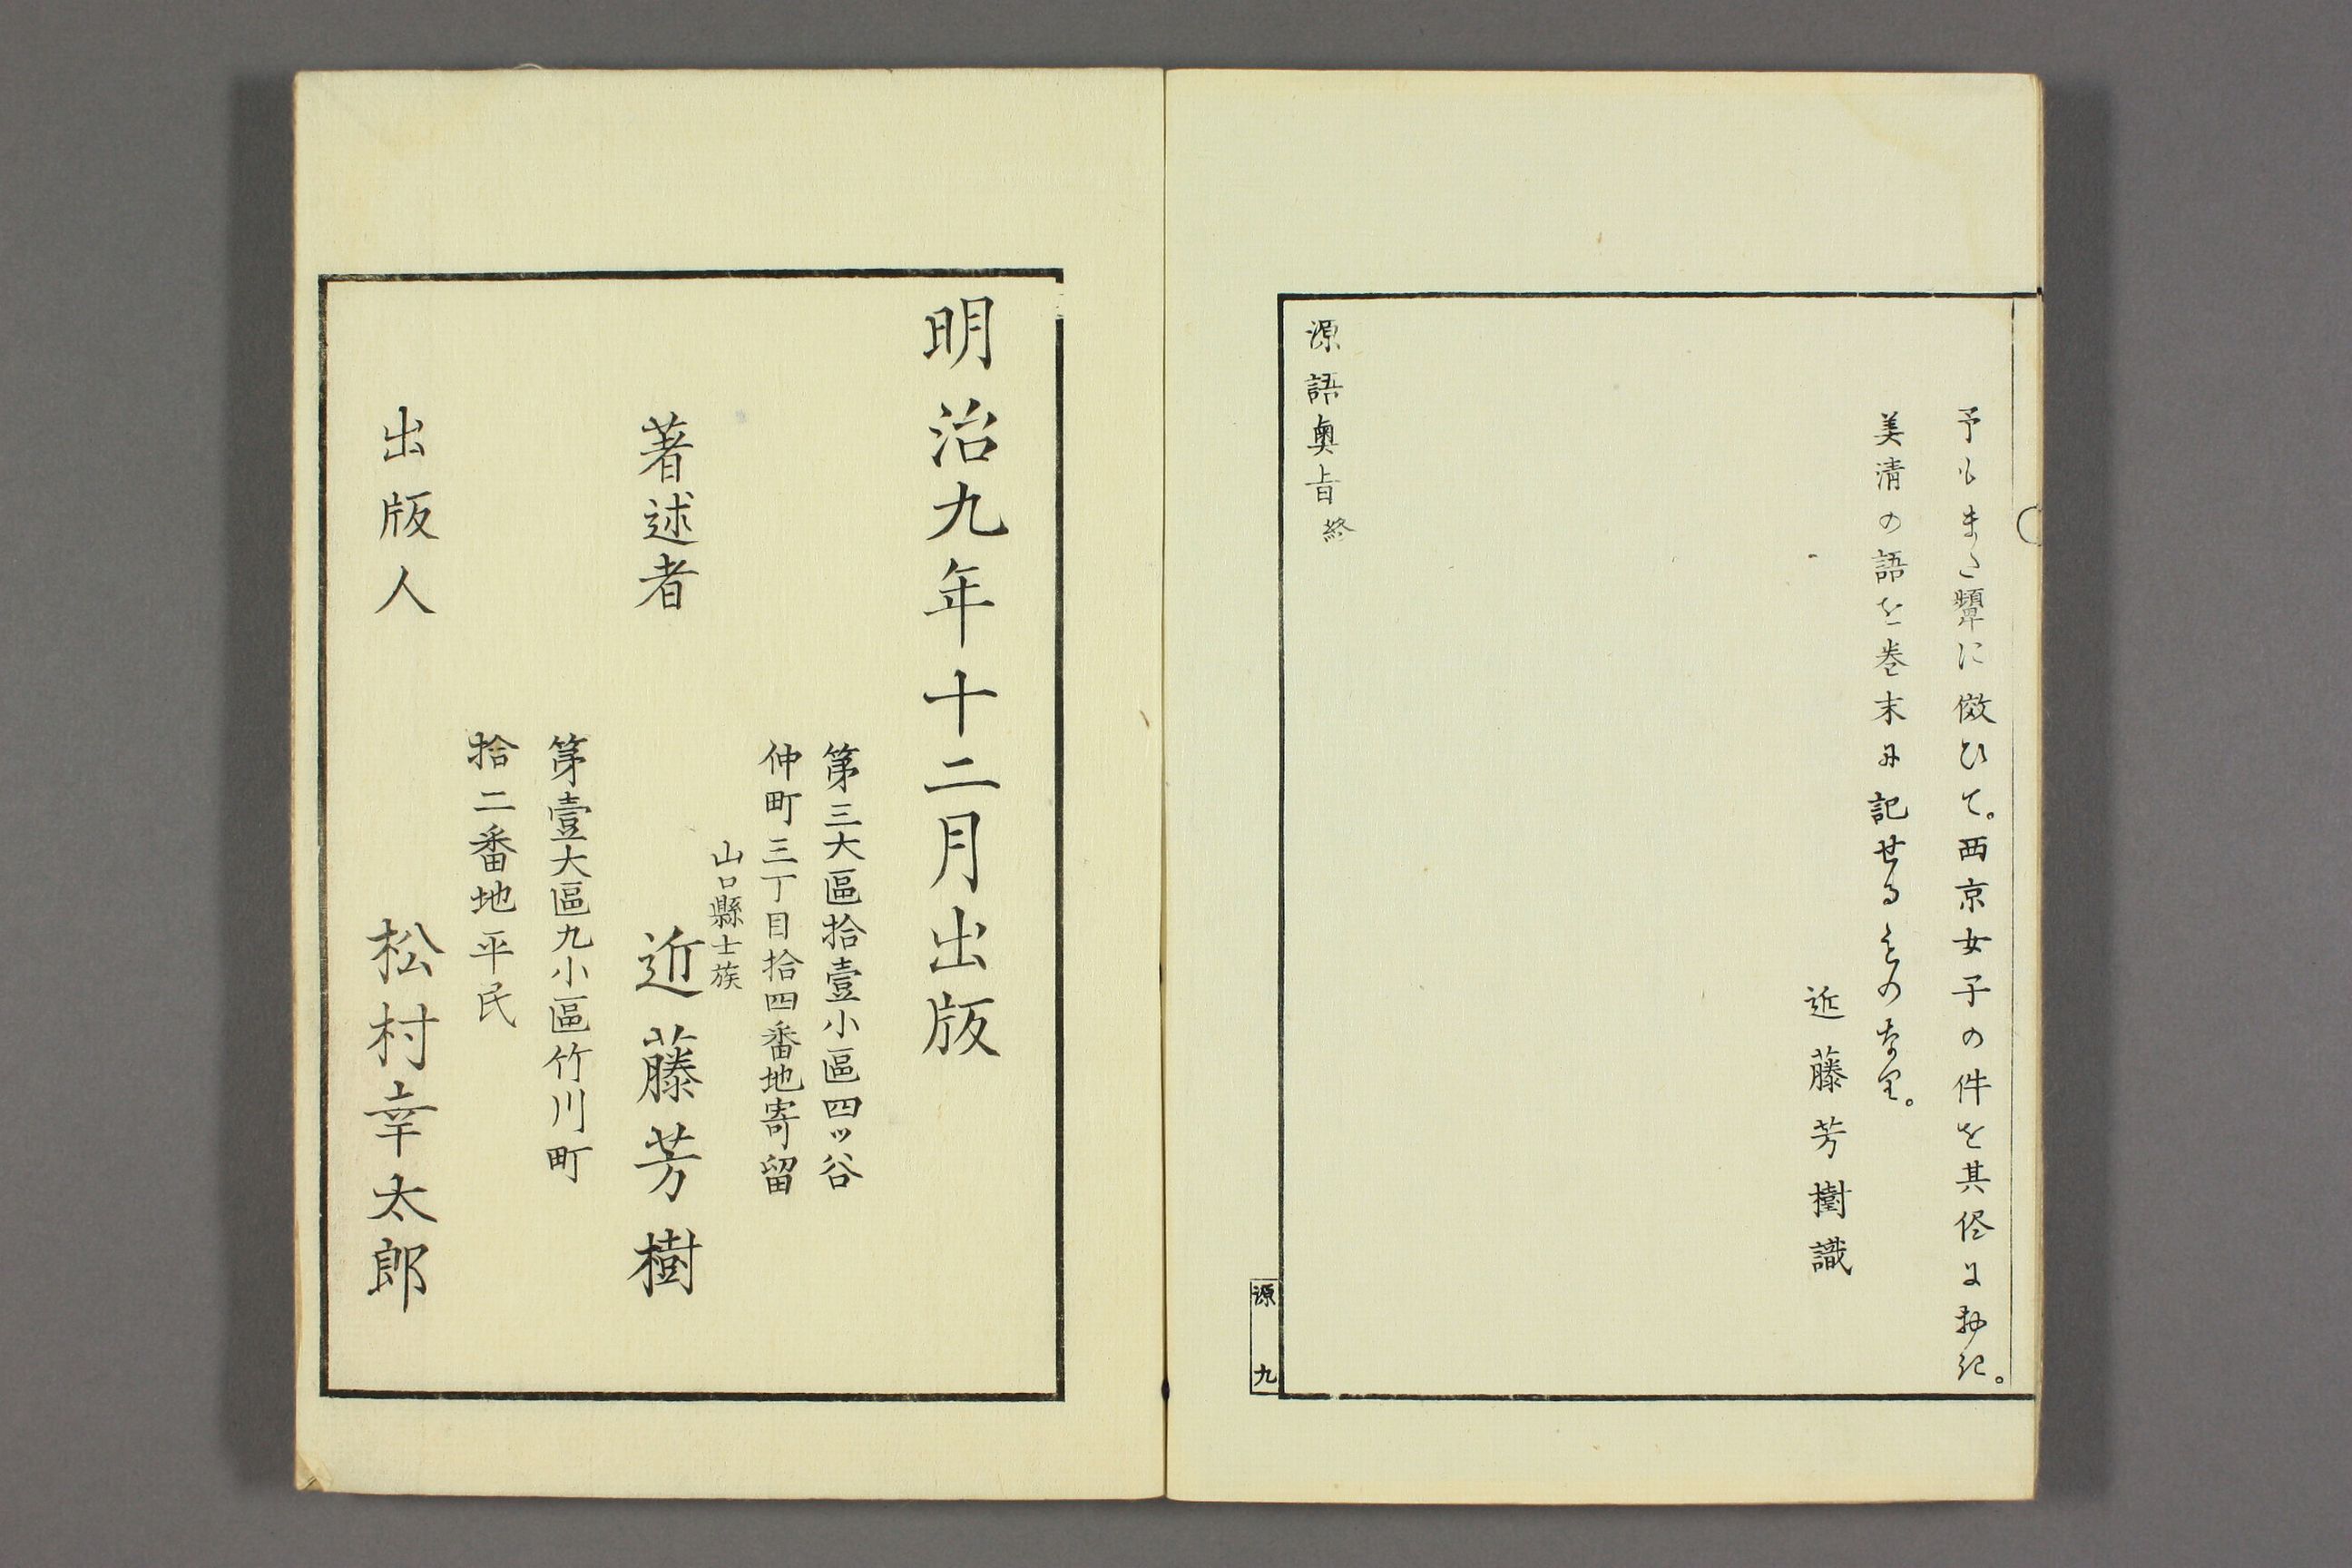 予もまた顰に傚ひて。西京女子の件を其侭に抄記。
美清の語を巻末に記せるものなり。
近藤芳樹識
源語奥旨終
源 九
明治九年十二月出版
第三大區拾壹小區四ッ谷
仲町三丁目拾四番地寄留
山口縣士族
著述者 近藤芳樹
第壹大區九小區竹川町
拾二番地平民
出版人 松村幸太郎